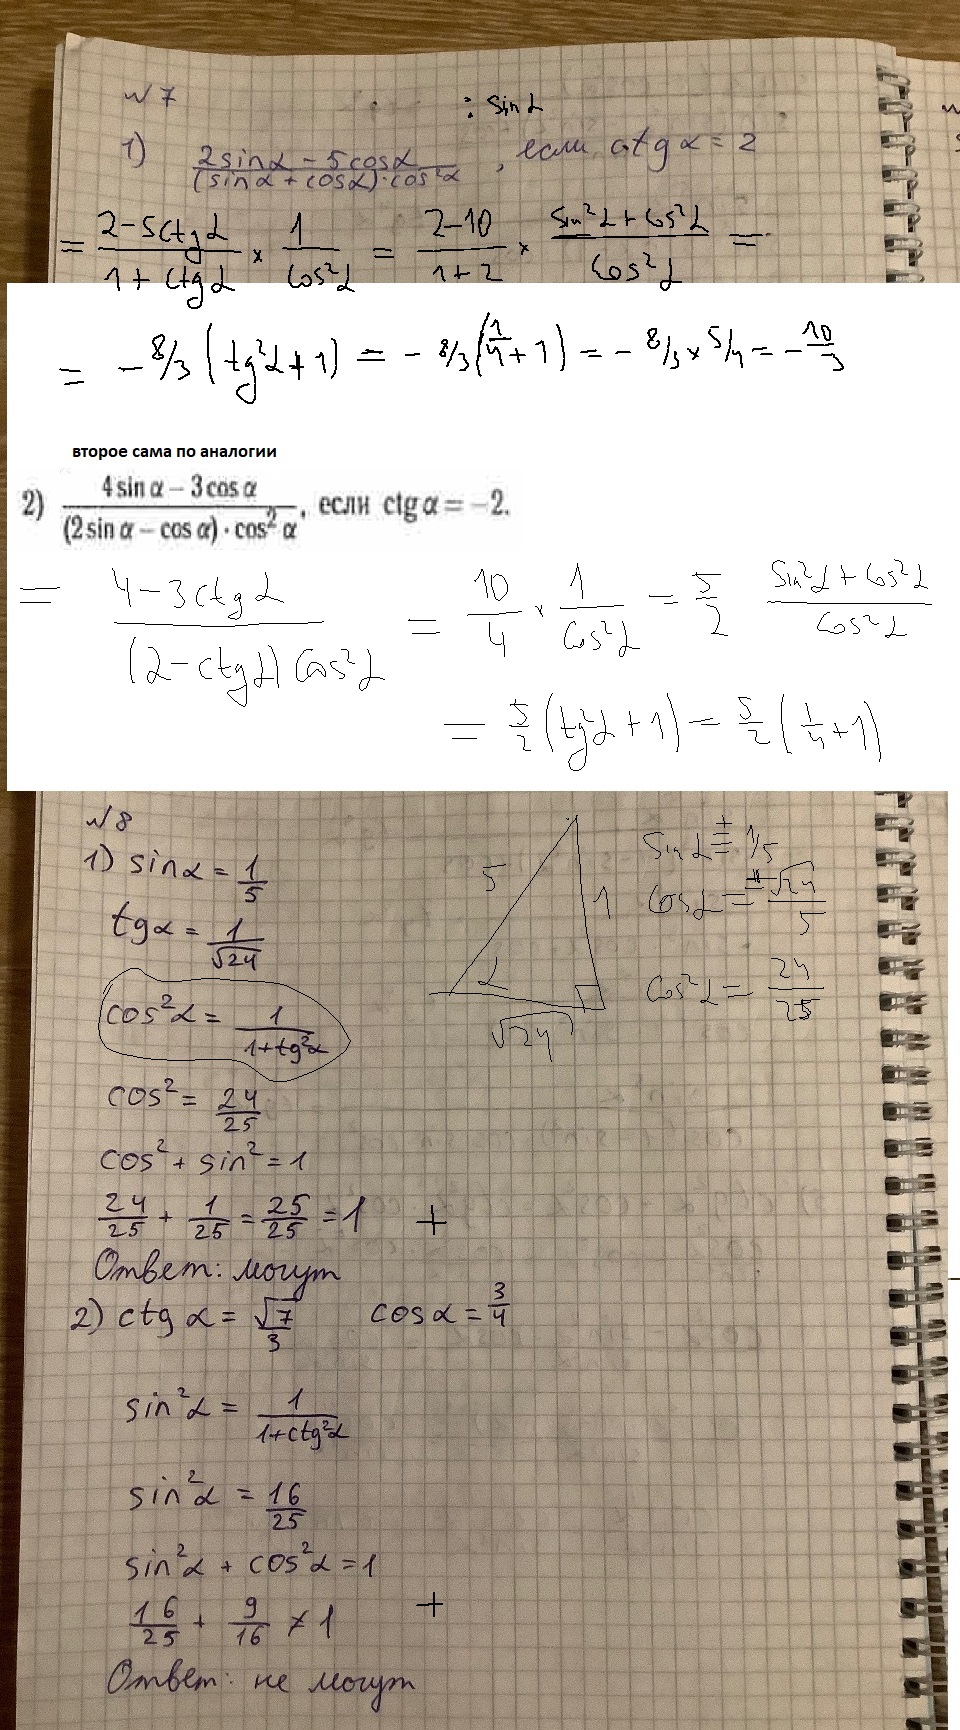 №7
: sin α
1) (2sinα − 5cosα)/((sinα + cosα)·cos²α), если ctg α = 2
= (2−5ctg α)/(1+ctg α) × 1/cos²α = (2−10)/(1+2) × (sin²α + cos²α)/cos²α =
= − 8/3 (tg²α + 1) = − 8/3 (1/4 + 1) = − 8/3 × 5/4 = − 10/3
второе сама по аналогии
2) (4 sin α − 3 cos α)/((2 sin α − cos α) · cos² α), если ctg α = −2.
= (4−3ctg α)/((2−ctg α) cos²α) = 10/4 × 1/cos²α = 5/2 (sin²α + cos²α)/cos²α
= 5/2 (tg²α + 1) = 5/2 (1/4 + 1)
№8
1) sinα = 1/5
tgα = 1/√24
cos²α = 1/(1+tg²α)
cos² = 24/25
cos² + sin² = 1
24/25 + 1/25 = 25/25 = 1 +
Ответ: могут
5
1
α
√24
sin α = ± 1/5
cos α = ± √24/5
cos²α = 24/25
2) ctg α = √7/3 cosα = 3/4
sin²α = 1/(1+ctg²α)
sin²α = 16/25
sin²α + cos²α = 1
16/25 + 9/16 ≠ 1 +
Ответ: не могут